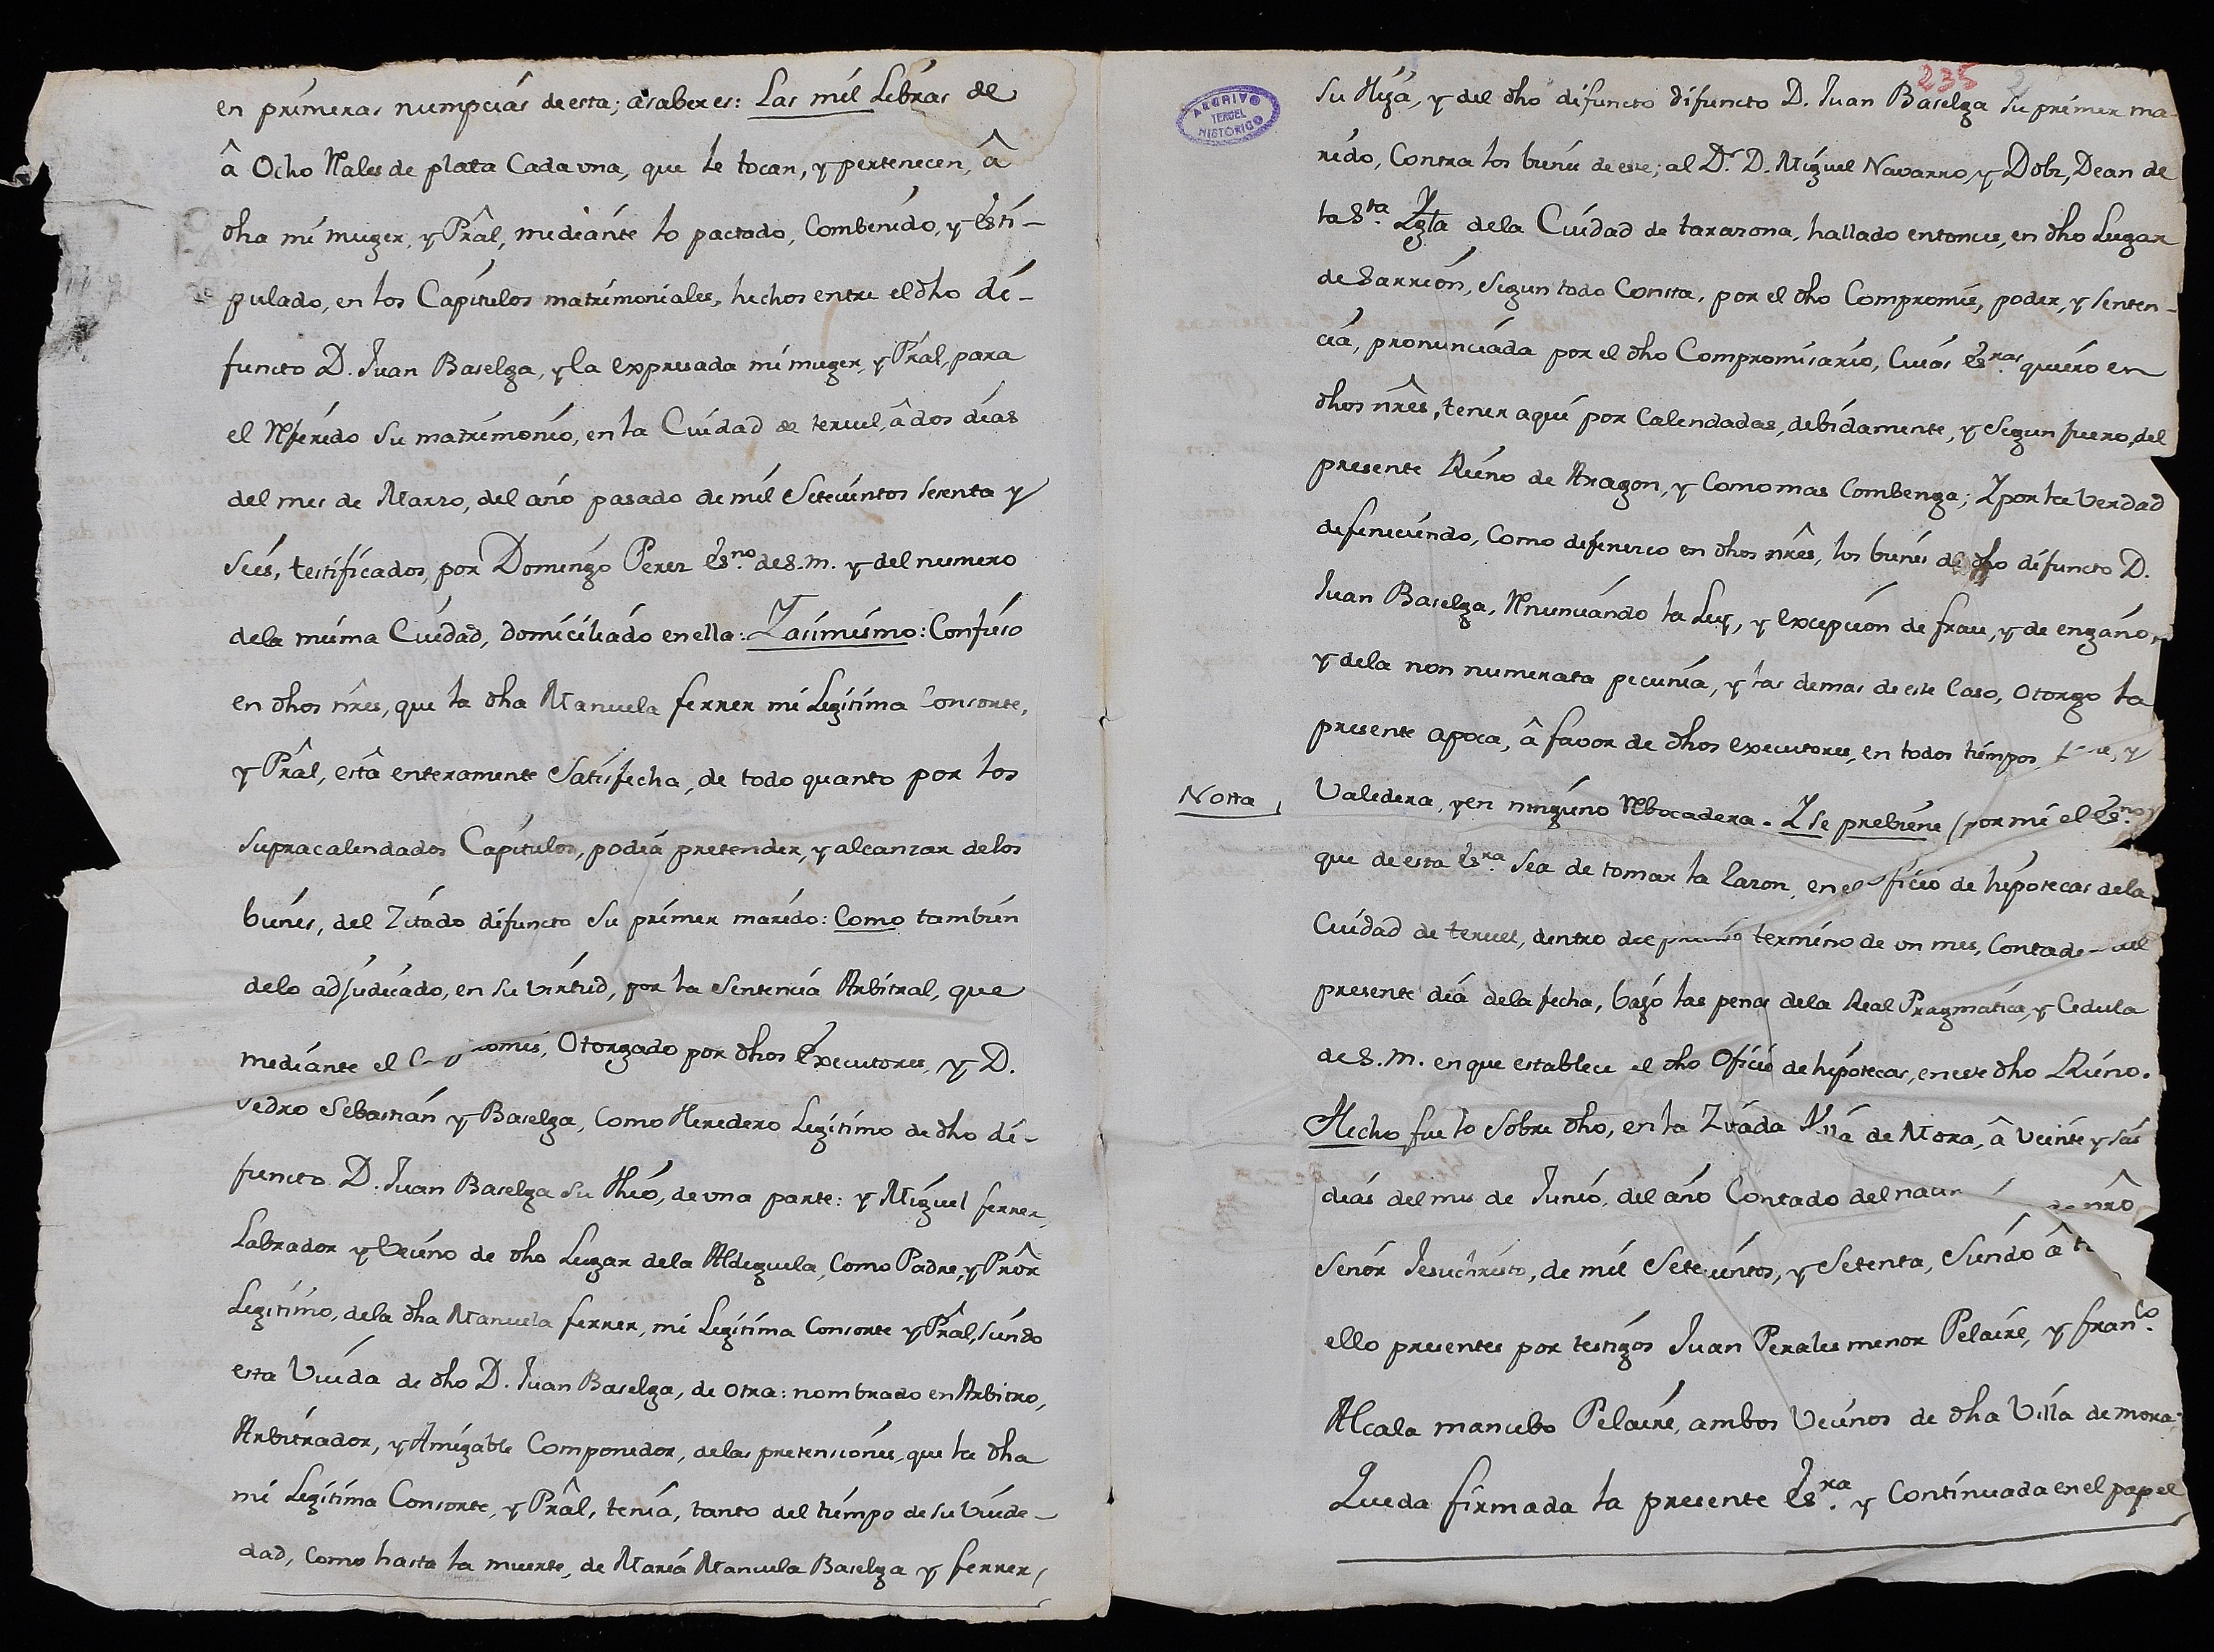 en primeras numpcias de esta; asaber es: Las mil Libras de
â Ocho Rales de plata Cada vna, que le tocan, y pertenecen, â
dha mi muger, y Prâl, mediante lo pactado, Combenido, y Esti-
pulado, en los Capitulos matrimoniales, hechos entre el dho di-
functo D. Juan Baselga, y la expresada mi muger, y Prâl, para
el Referido su matrimonio, en la Ciudad de teruel, â dos dias
del mes de Marzo, del año pasado de mil Setecientos sesenta y
seis, testificados, por Domingo Perez Es.no de S. M. y del numero
dela misma Ciudad, domiciliado en ella: Y asimismo: Confieso
en dhos nr̂es, que la dha Manuela ferrer mi Legitima Consorte,
y Prâl, estâ enteramente Satisfecha, de todo quanto por los
supracalendados Capitulos, podia pretender, y alcanzar delos
bienes, del Zitado difuncto su primer marido: Como tambien
delo adjudicado, en su virtud, por la Sentencia Arbitral, que
mediante el Otorgado por dhos Executores, y D.
Pedro Sebastian y Baselga, Como Heredero Legitimo de dho di-
functo D. Juan Baselga su thio, de vna parte: y Miguel ferrer,
Labrador y Vecino de dho Lugar dela Aldeguela, Como Padre, y Prôr
Legitimo, dela dha Manuela ferrer, mi Legitima Consorte y Prâl, siendo
esta Viuda de dho D. Juan Baselga, de otra: nombrado en Arbitro,
Arbitrador, y Amigable Componedor, delas pretensiones, que la dha
mi Legitima Consorte, y Prâl, tenia, tanto del tiempo de su Viude-
dad, Como hasta la muerte, de Maria Manuela Baselga y ferrer,
235
ARCHIVO
TERUEL
HISTORICO
su Hija, y del dho difuncto difuncto D. Juan Baselga su primer ma-
rido, Contra los bienes de este; al D.r D. Miguel Navarro, y Dolz, Dean de
la S.ta Yglã dela Ciudad de tarazona, hallado entonces, en dho Lugar
de Sarrion, segun todo Consta, por el dho Compromis, poder, y senten-
cia, pronunciada por el dho Compromisario, Cuias Es.ras quiero en
dhos nr̂es, tener aqui por Calendadas, debidamente, y segun fuero, del
presente Reino de Aragon, y Como mas Combenga; Y por la Verdad
difeneciendo, Como difenezco en dhos nr̂es, los bienes de dho difuncto D.
Juan Baselga, Renunciando la Ley, y excepcion de frau, y de engaño,
y dela non numerata pecunia, y las demas de este Caso, otorgo la
presente apoca, â favor de dhos executores, en todos tiempos y
Notta
Valedera, y en ninguno Rebocadera. Y se prebiene (por mi el Es.no)
que de esta Es.ra sea de tomar la Razon, en el oficio de hipotecas dela
Ciudad de teruel, dentro del preciso termino de vn mes, del
presente dia dela fecha, bajo las penas dela Real Pragmatica, y Cedula
de S. M. en que establece el dho Oficio de hipotecas, en este dho Reino.
Hecho fue lo sobre dho, en la Zitada Villa de Mora, â veinte y seis
dias del mes de Junio, del año Contado del de nrô
Señor Jesuchristo, de mil Setecientos, y Setenta, siendo â
ello presentes por testigos Juan Perales menor Pelaire, y fran.co
Alcala mancebo Pelaire, ambos Vecinos de dha Villa de mora:
Queda firmada la presente Es.ra y Continuada en el papel